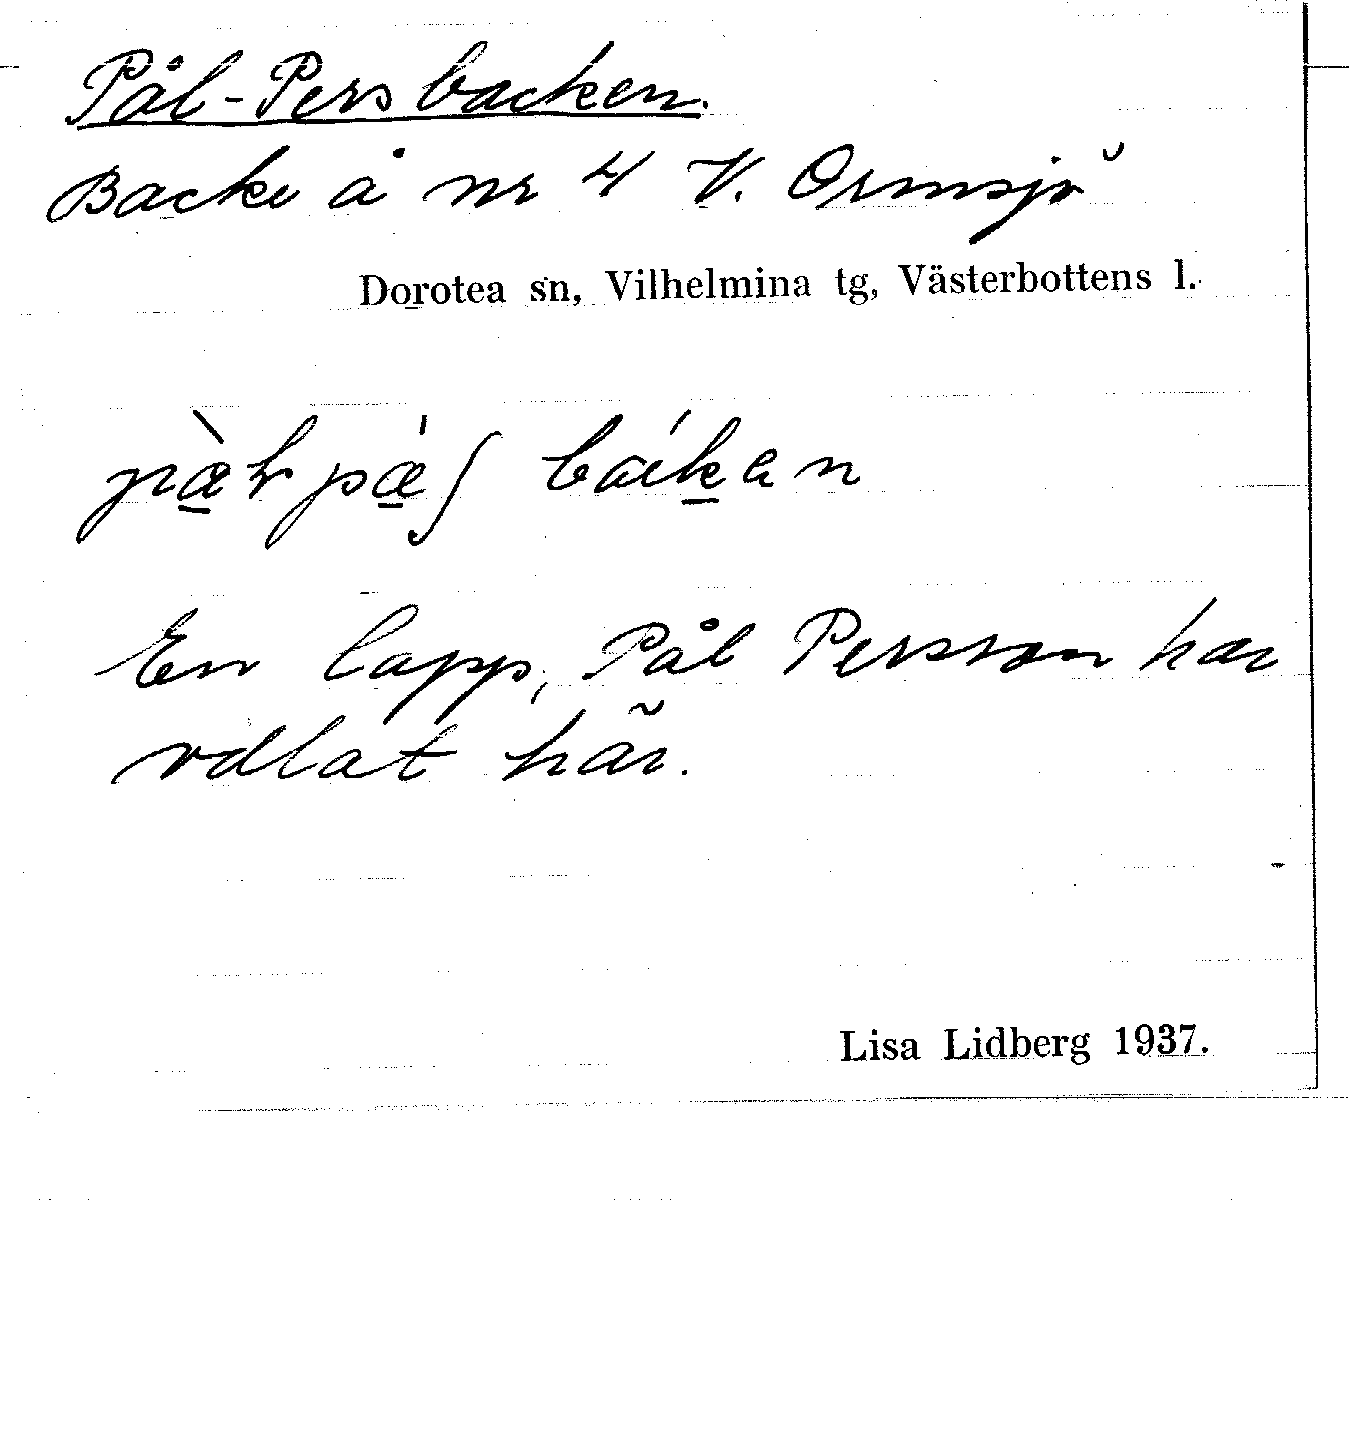 Pål-Persbacken.
Backe å nr 4 V. Ormsjö
Dorotea sn, Vilhelmina tg, Västerbottens l.
bákan
En lapp, Pål Persson har
vålat här.
Lisa Lidberg 1937.